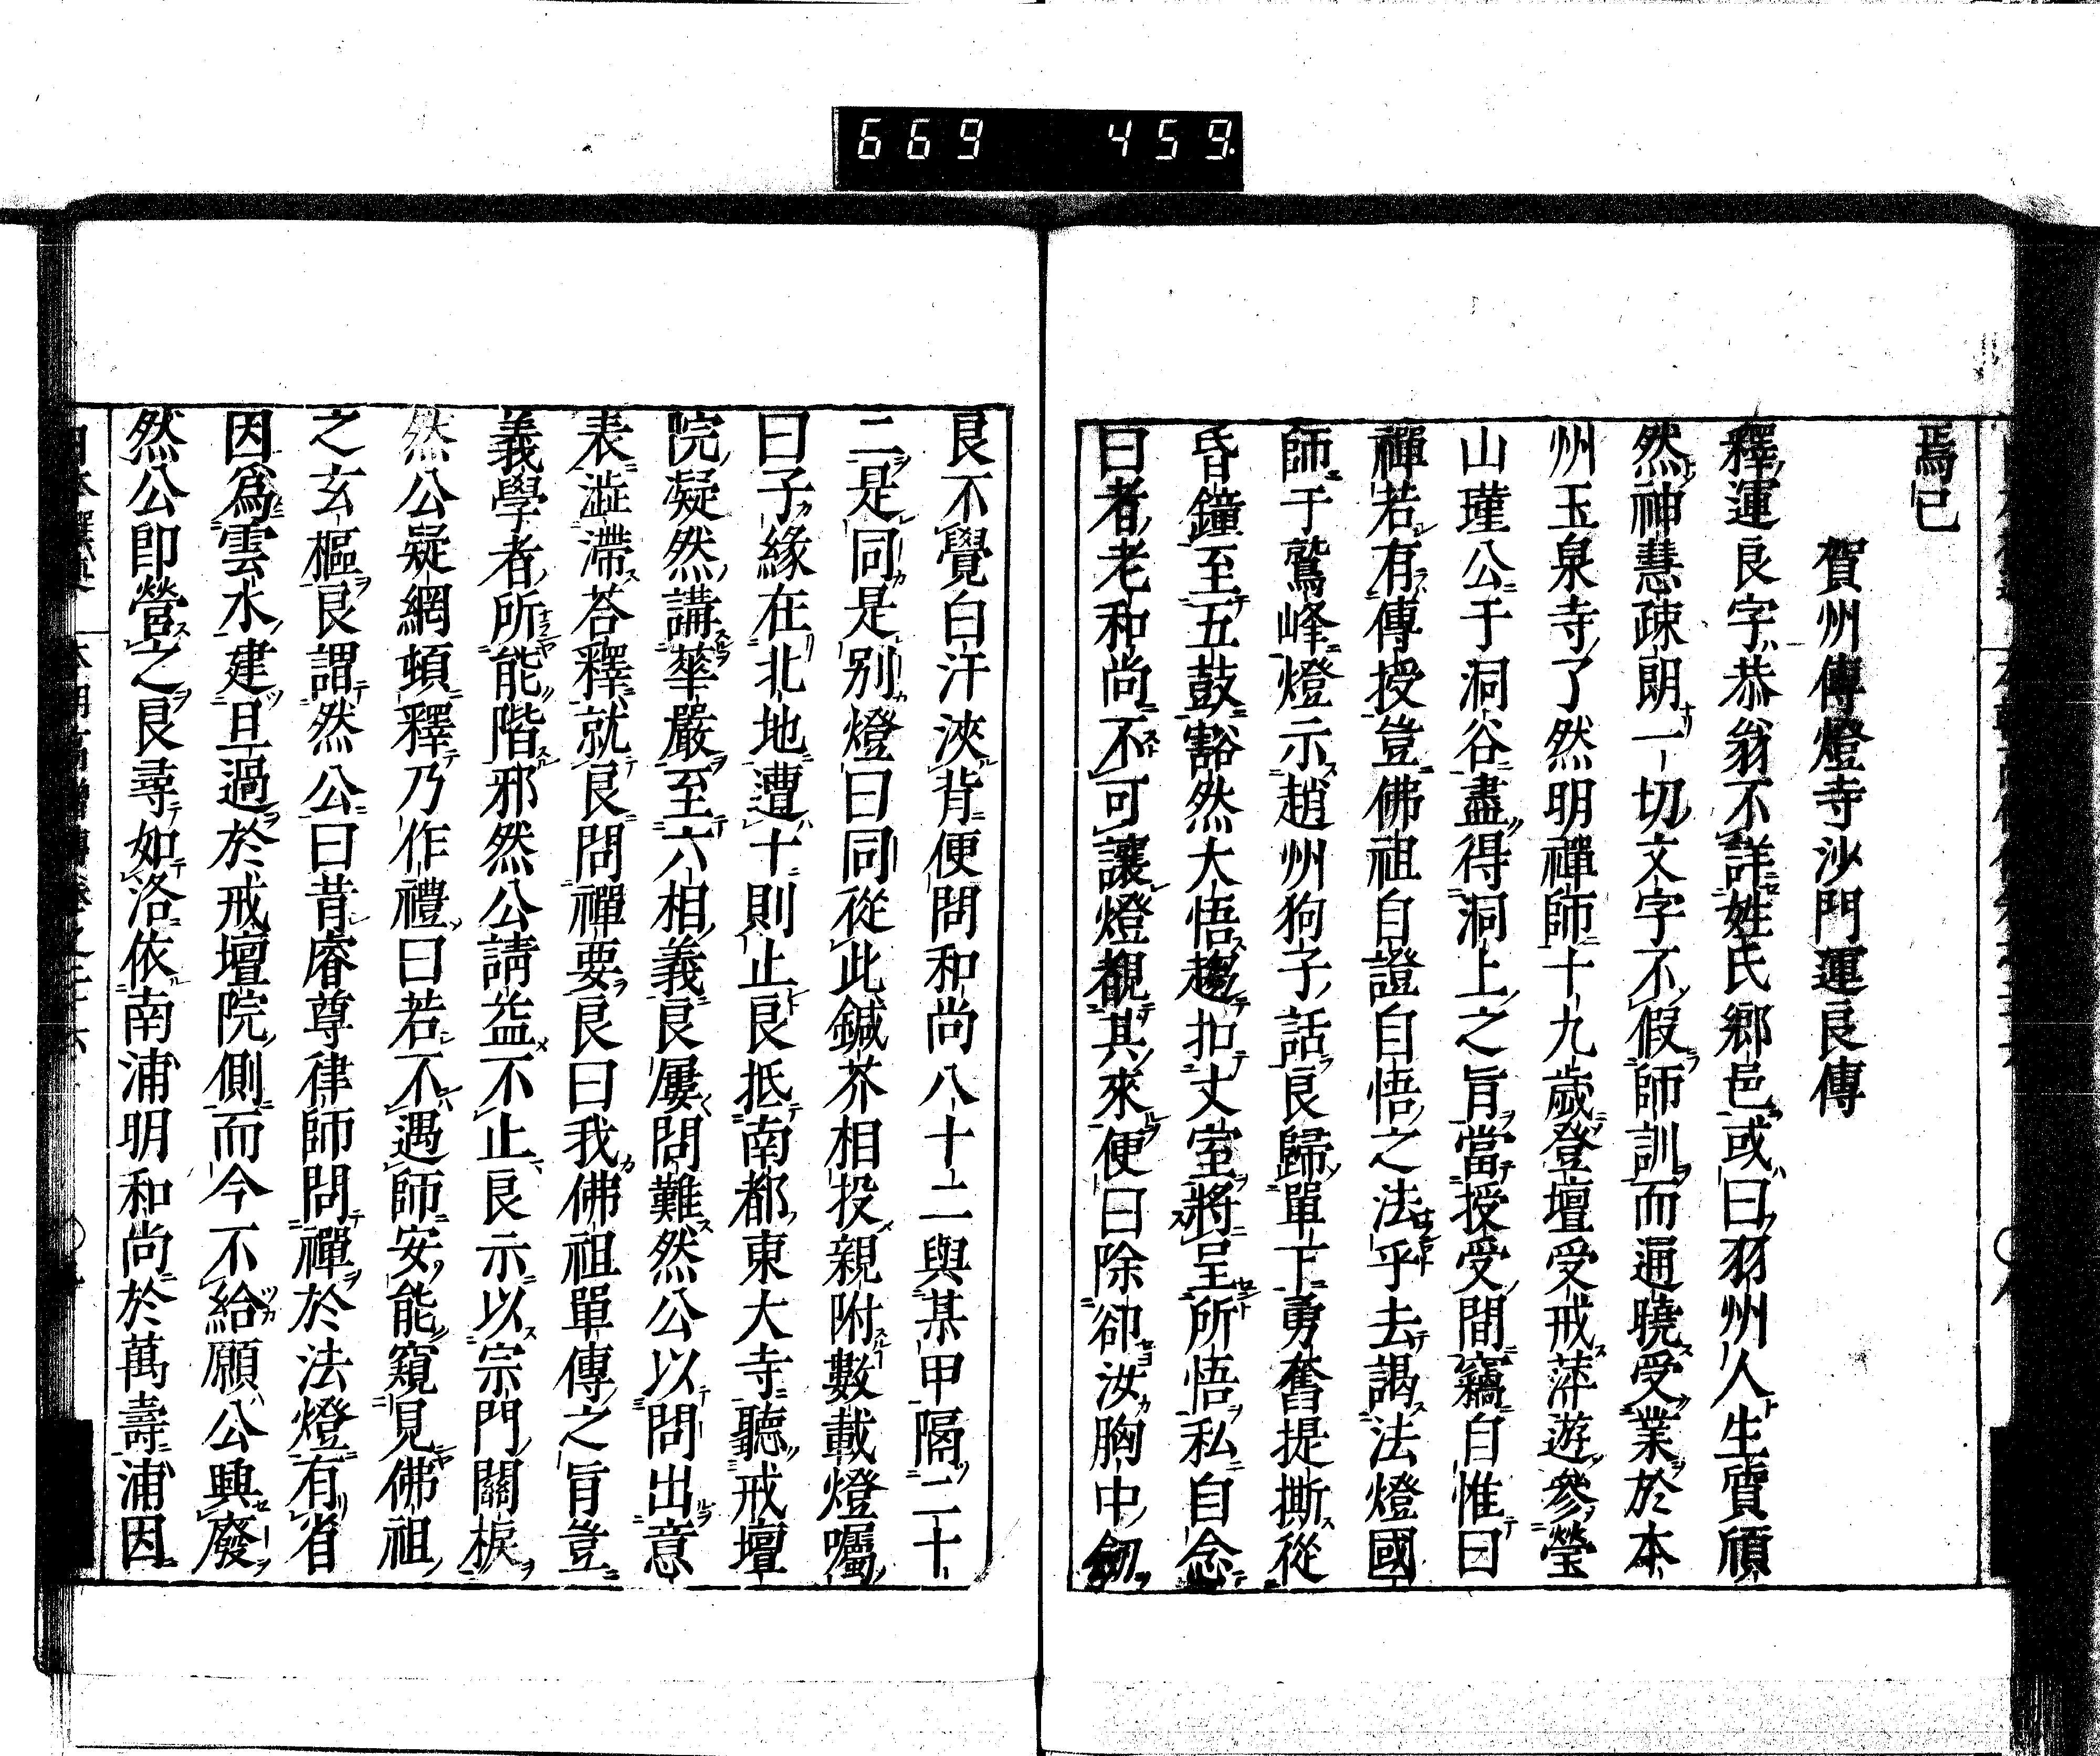 669 459
焉已
賀州傳燈寺沙門運良傳
釋運良字恭翁不詳姓氏鄉邑或曰羽州人生質頎
然神慧疎朗一切文字不假師訓而通曉受業於本
州玉泉寺了然明禪師十九歲登壇受戒萍遊參瑩
山瑾公于洞谷盡得洞上之旨當授受間竊自惟曰
禪若有傳授豈佛祖自證自悟之法乎去謁法燈國
師于鷲峰燈示趙州狗子話良歸單下勇奮提撕從
昏鐘至五鼓豁然大悟趨扣丈室將呈所悟私自念
曰者老和尚不可讓燈覩其來便曰除卻汝胸中劒
良不覺白汗浹背便問和尚八十二與某甲隔二十
二是同是別燈曰同從此鍼芥相投親附數載燈囑
曰子緣在北地遭十則止良抵南都東大寺聽戒壇
院凝然講華嚴至六相義良屢問難然公以問出意
表澁滯答釋就良問禪要良曰我佛祖單傳之旨豈
義學者所能階邪然公請益不止良示以宗門關棙
然公疑網頓釋乃作禮曰若不遇師安能窺見佛祖
之玄樞良謂然公曰昔睿尊律師問禪於法燈有省
因爲雲水建旦過於戒壇院側而今不給願公興廢
然公即營之良尋如洛依南浦明和尚於萬壽浦因